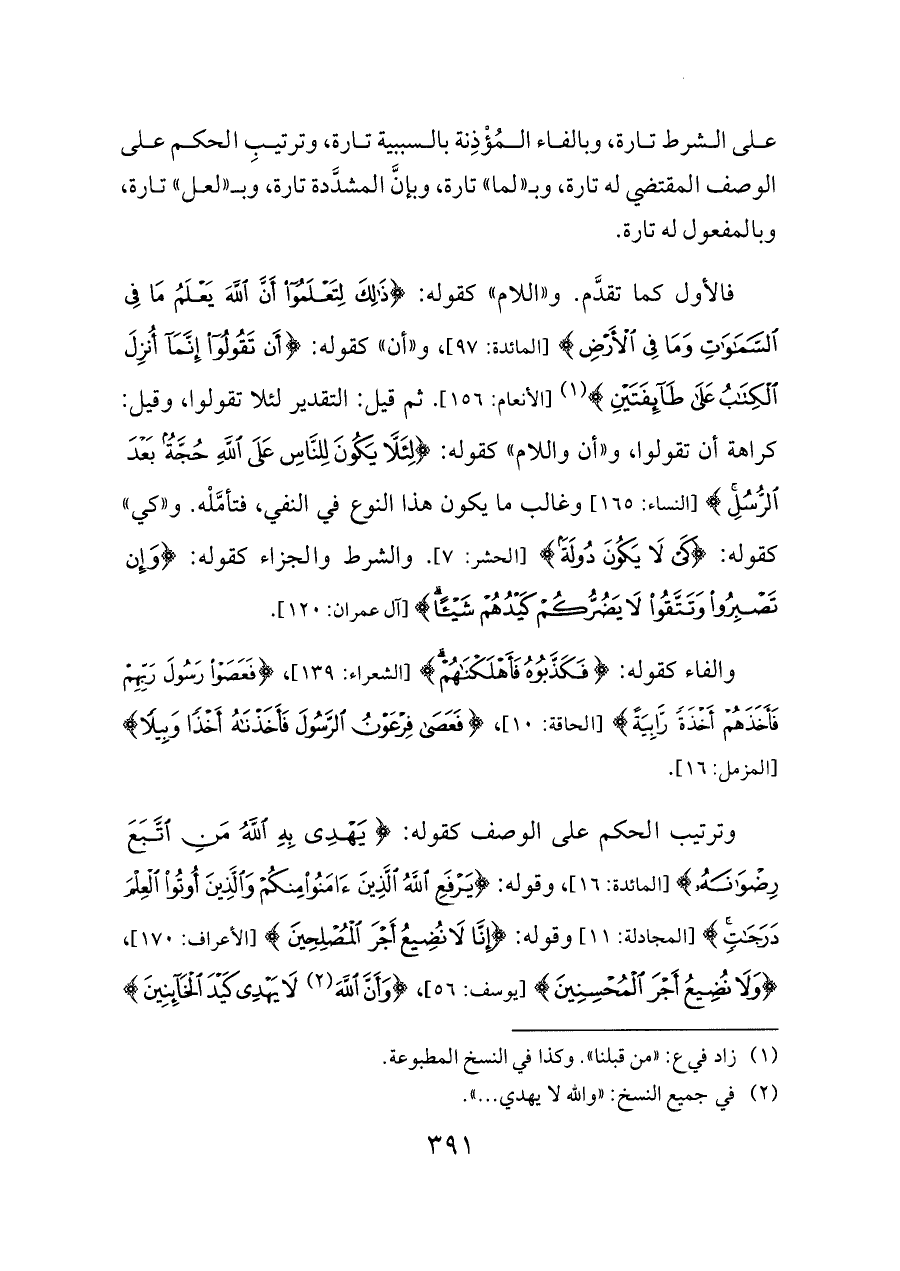 على الشرط تارة، وبالفاء المُؤْذِنة بالسببية تارة، وترتيبِ الحكم على
الوصف المقتضي له تارة، وبـ«لما» تارة، وبإنَّ المشدَّدة تارة، وبـ«لعل» تارة،
وبالمفعول له تارة.
فالأول كما تقدَّم. و«اللام» كقوله: ﴿ذَٰلِكَ لِتَعْلَمُوٓا۟ أَنَّ ٱللَّهَ يَعْلَمُ مَا فِى
ٱلسَّمَٰوَٰتِ وَمَا فِى ٱلْأَرْضِ﴾ [المائدة: ٩٧]، و«أن» كقوله: ﴿أَن تَقُولُوٓا۟ إِنَّمَآ أُنزِلَ
ٱلْكِتَٰبُ عَلَىٰ طَآئِفَتَيْنِ﴾(١) [الأنعام: ١٥٦]. ثم قيل: التقدير لئلا تقولوا، وقيل:
كراهة أن تقولوا، و«أن واللام» كقوله: ﴿لِئَلَّا يَكُونَ لِلنَّاسِ عَلَى ٱللَّهِ حُجَّةٌۢ بَعْدَ
ٱلرُّسُلِ ۚ﴾ [النساء: ١٦٥] وغالب ما يكون هذا النوع في النفي، فتأمَّلْه. و«كي»
كقوله: ﴿كَىْ لَا يَكُونَ دُولَةًۢ﴾ [الحشر: ٧]. والشرط والجزاء كقوله: ﴿وَإِن
تَصْبِرُوا۟ وَتَتَّقُوا۟ لَا يَضُرُّكُمْ كَيْدُهُمْ شَيْـًٔا ۗ﴾ [آل عمران: ١٢٠].
والفاء كقوله: ﴿فَكَذَّبُوهُ فَأَهْلَكْنَٰهُمْ ۗ﴾ [الشعراء: ١٣٩]، ﴿فَعَصَوْا۟ رَسُولَ رَبِّهِمْ
فَأَخَذَهُمْ أَخْذَةً رَّابِيَةً﴾ [الحاقة: ١٠]، ﴿فَعَصَىٰ فِرْعَوْنُ ٱلرَّسُولَ فَأَخَذْنَٰهُ أَخْذًا وَبِيلًا﴾
[المزمل: ١٦].
وترتيب الحكم على الوصف كقوله: ﴿يَهْدِى بِهِ ٱللَّهُ مَنِ ٱتَّبَعَ
رِضْوَٰنَهُۥ﴾ [المائدة: ١٦]، وقوله: ﴿يَرْفَعِ ٱللَّهُ ٱلَّذِينَ ءَامَنُوا۟ مِنكُمْ وَٱلَّذِينَ أُوتُوا۟ ٱلْعِلْمَ
دَرَجَٰتٍ ۚ﴾ [المجادلة: ١١] وقوله: ﴿إِنَّا لَا نُضِيعُ أَجْرَ ٱلْمُصْلِحِينَ﴾ [الأعراف: ١٧٠]،
﴿وَلَا نُضِيعُ أَجْرَ ٱلْمُحْسِنِينَ﴾ [يوسف: ٥٦]، ﴿وَأَنَّ ٱللَّهَ(٢) لَا يَهْدِى كَيْدَ ٱلْخَآئِنِينَ﴾
(١) زاد في ع: «من قبلنا». وكذا في النسخ المطبوعة.
(٢) في جميع النسخ: «والله لا يهدي...».
٣٩١